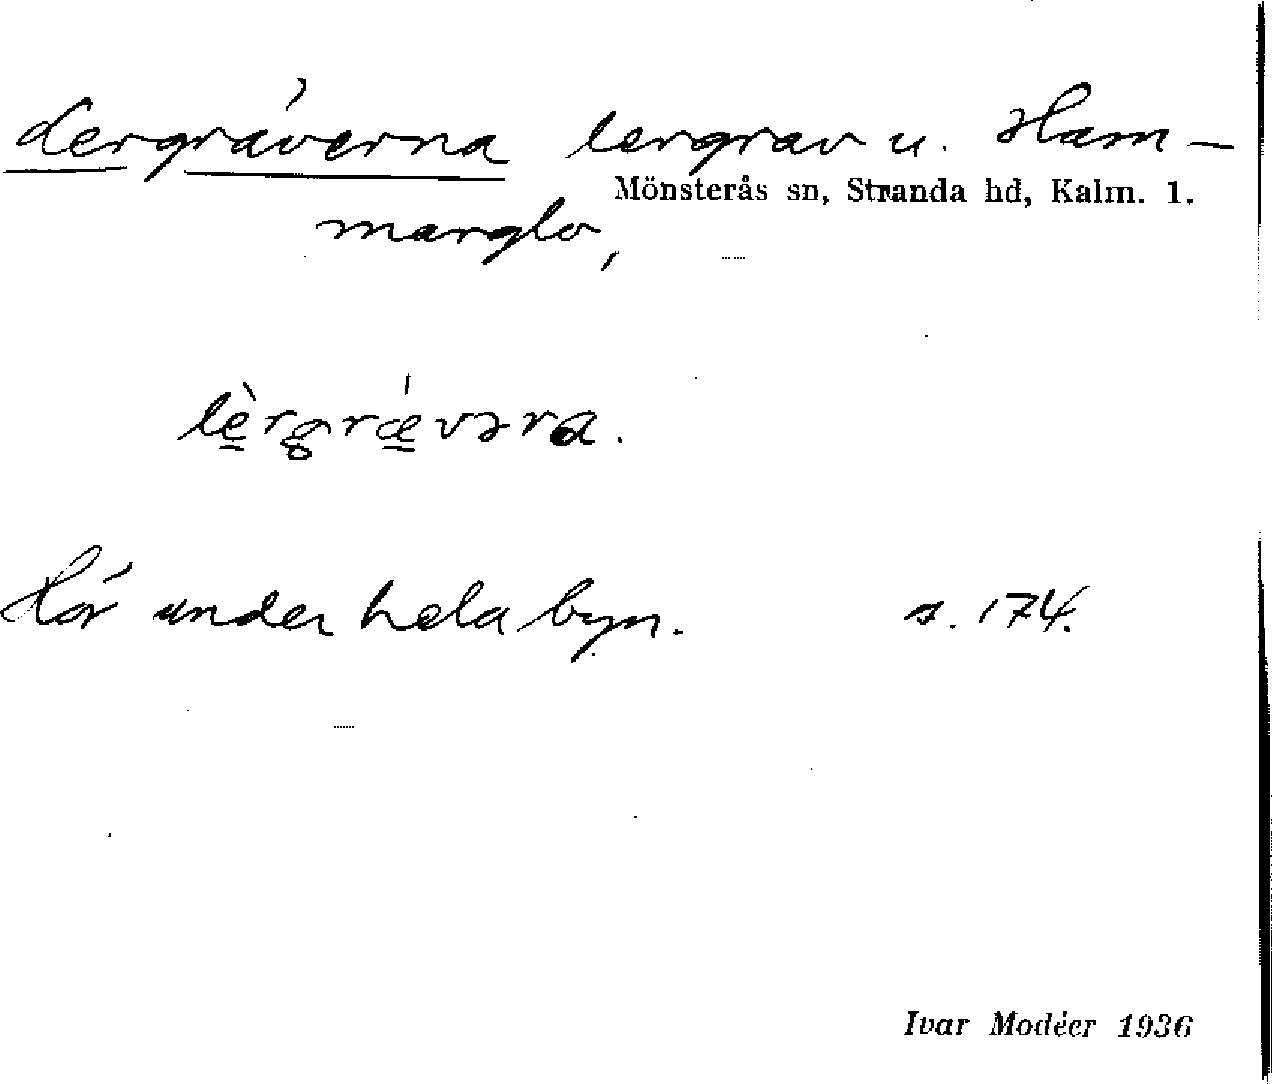 Lergräverna lergrav u. Ham-
Mönsterås sn, Stranda hd, Kalm. l.
marglo,
lèrgrǽvəra.
Hör under hela byn. s. 174.
Ivar Modéer 1936